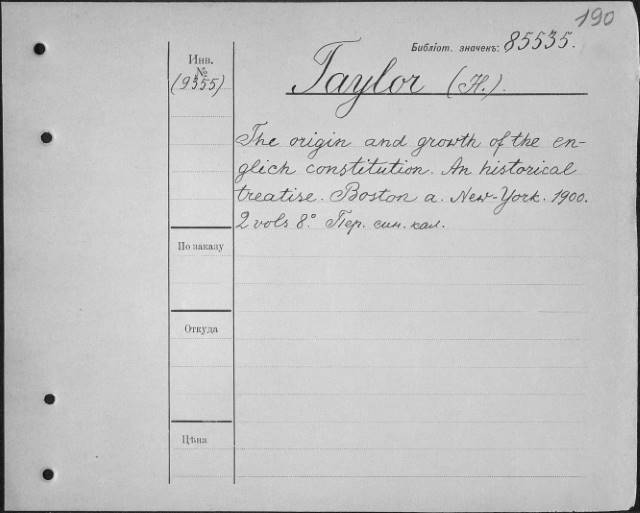 190
Библіот. значекъ: 85535.
Инв.
№
(9355)
Taylor (H.).
The origin and growth of the en-
glich constitution. An historical
treatise. Boston a. New-York. 1900.
2 vols 8.° Пер. син. кал.
По заказу
Откуда
Цѣна